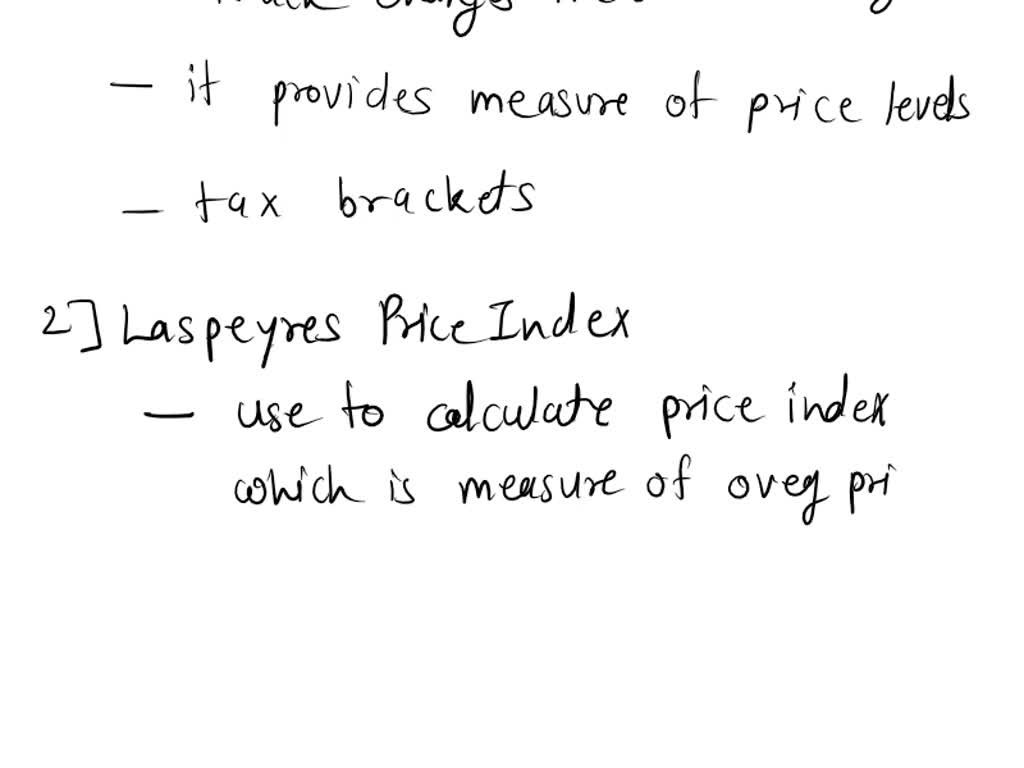 — it provides measure of price levels
— tax brackets
2] Laspeyres Price Index
— use to calculate price index
which is measure of oveg pri